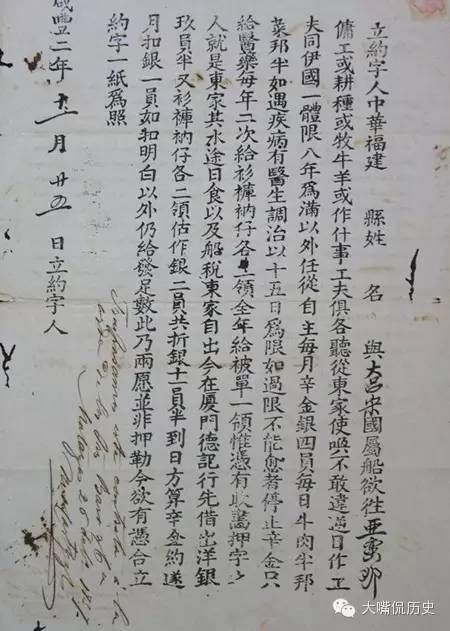 立約字人中華福建　縣姓　名　與大呂宋國屬船欲往亞灣那
傭工或耕種或牧牛羊或作什事工夫俱各聽從東家使喚不敢違逆日作工
夫同伊國一體限八年為滿以外任從自主每月辛金銀四員每日牛肉半邦
菜邦半如遇疾病有醫生調治以十五日為限如過限不能愈者停止辛金只
給醫藥每年二次給衫褲衲仔各一領全年給被單一領惟憑有收畫押字之
人就是東家其水途日食以及船稅東家自出今在廈門德記行先借出洋銀
玖員半又衫褲衲仔各二領估作銀二員共折銀十一員半到日方算辛金約逐
月扣銀一員如扣明白以外仍給發足數此乃兩愿並非押勒今欲有憑合立
約字一紙為照
咸豐二年十二月廿五日立約字人
大嘴侃历史